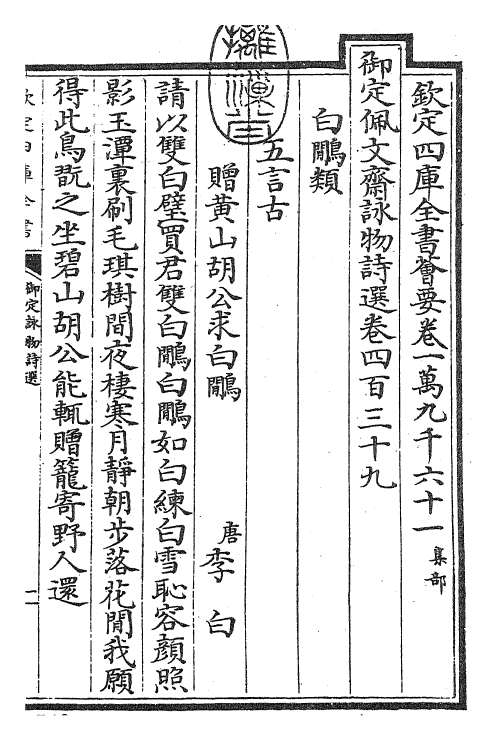 欽定四庫全書薈要卷一萬九千六十一集部
御定佩文齋詠物詩選卷四百三十九
白鷴類
五言古
贈黃山胡公求白鷴 唐李白
請以雙白璧買君雙白鷴白鷴如白練白雪恥容顔照
影玉潭裏刷毛琪樹間夜棲寒月靜朝步落花閒我願
得此鳥翫之坐碧山胡公能輒贈籠寄野人還
欽定四庫全書
御定詠物詩選
一